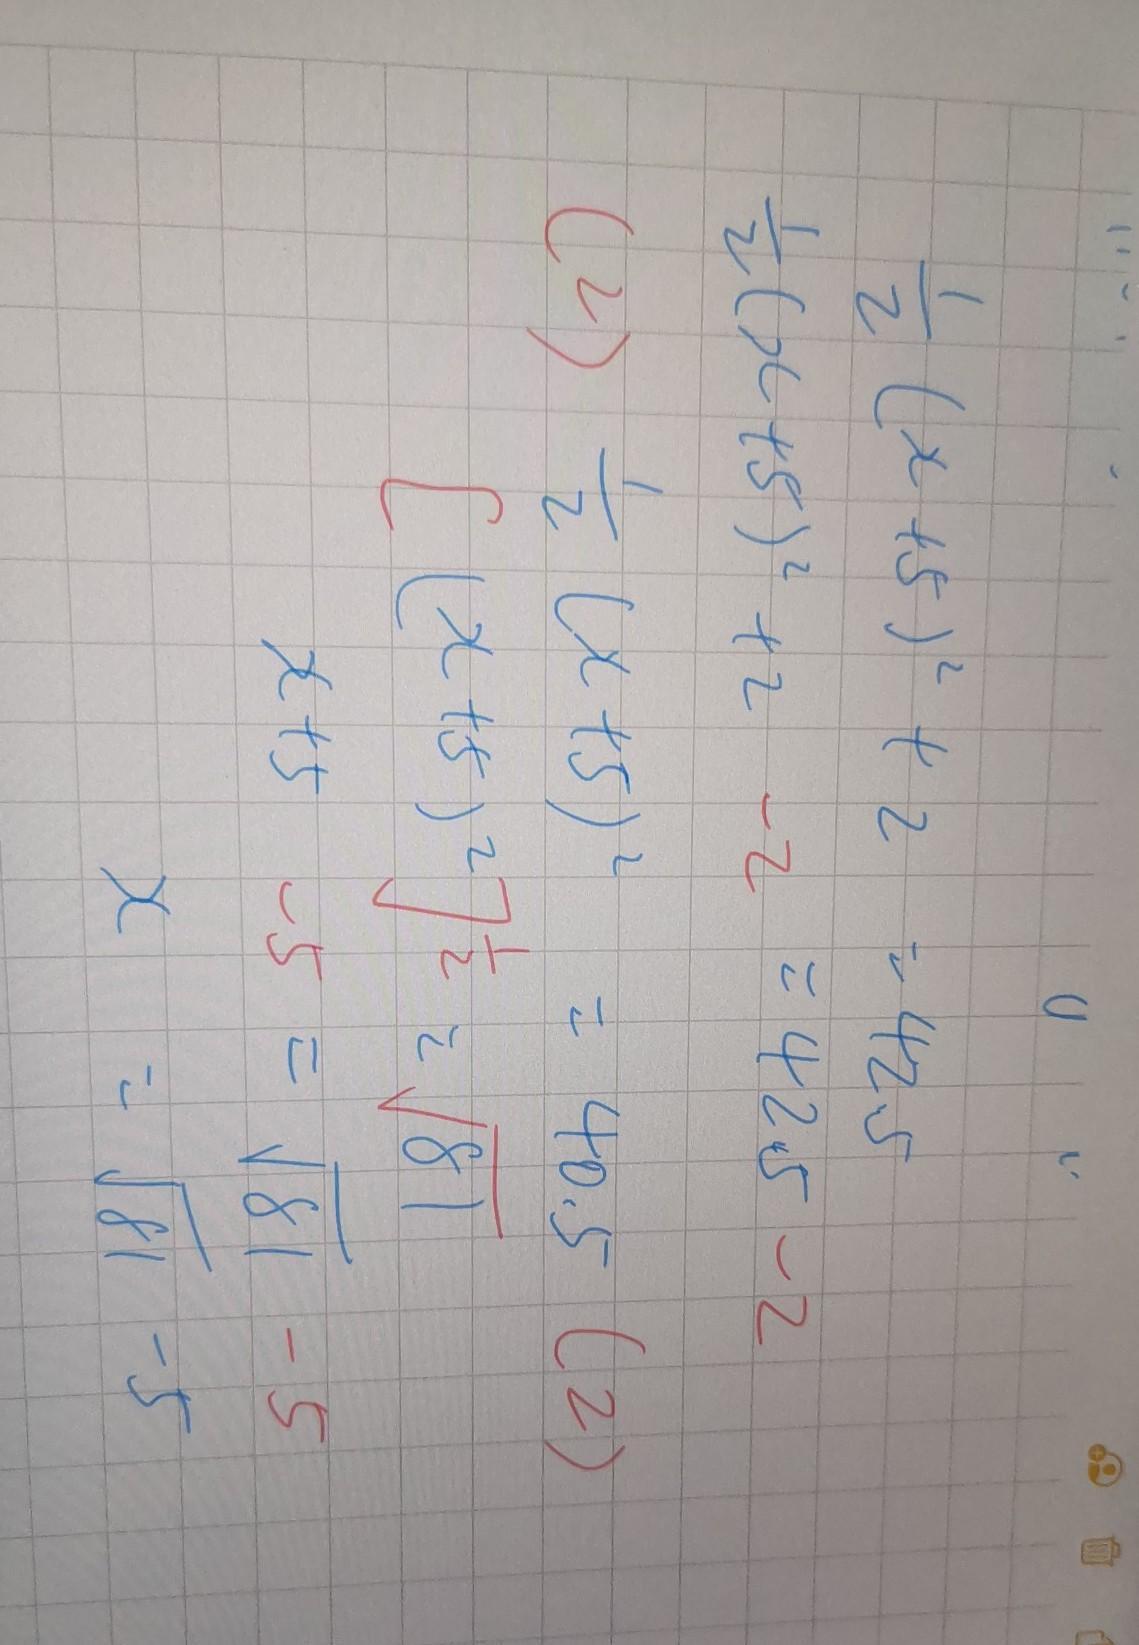 1/2 (x+5)² + 2 = 42.5
1/2 (x+5)² + 2 - 2 = 42.5 - 2
(2) 1/2 (x+5)² = 40.5 (2)
[(x+5)²]^1/2 = √81
x+5 - 5 = √81 - 5
x = √81 - 5